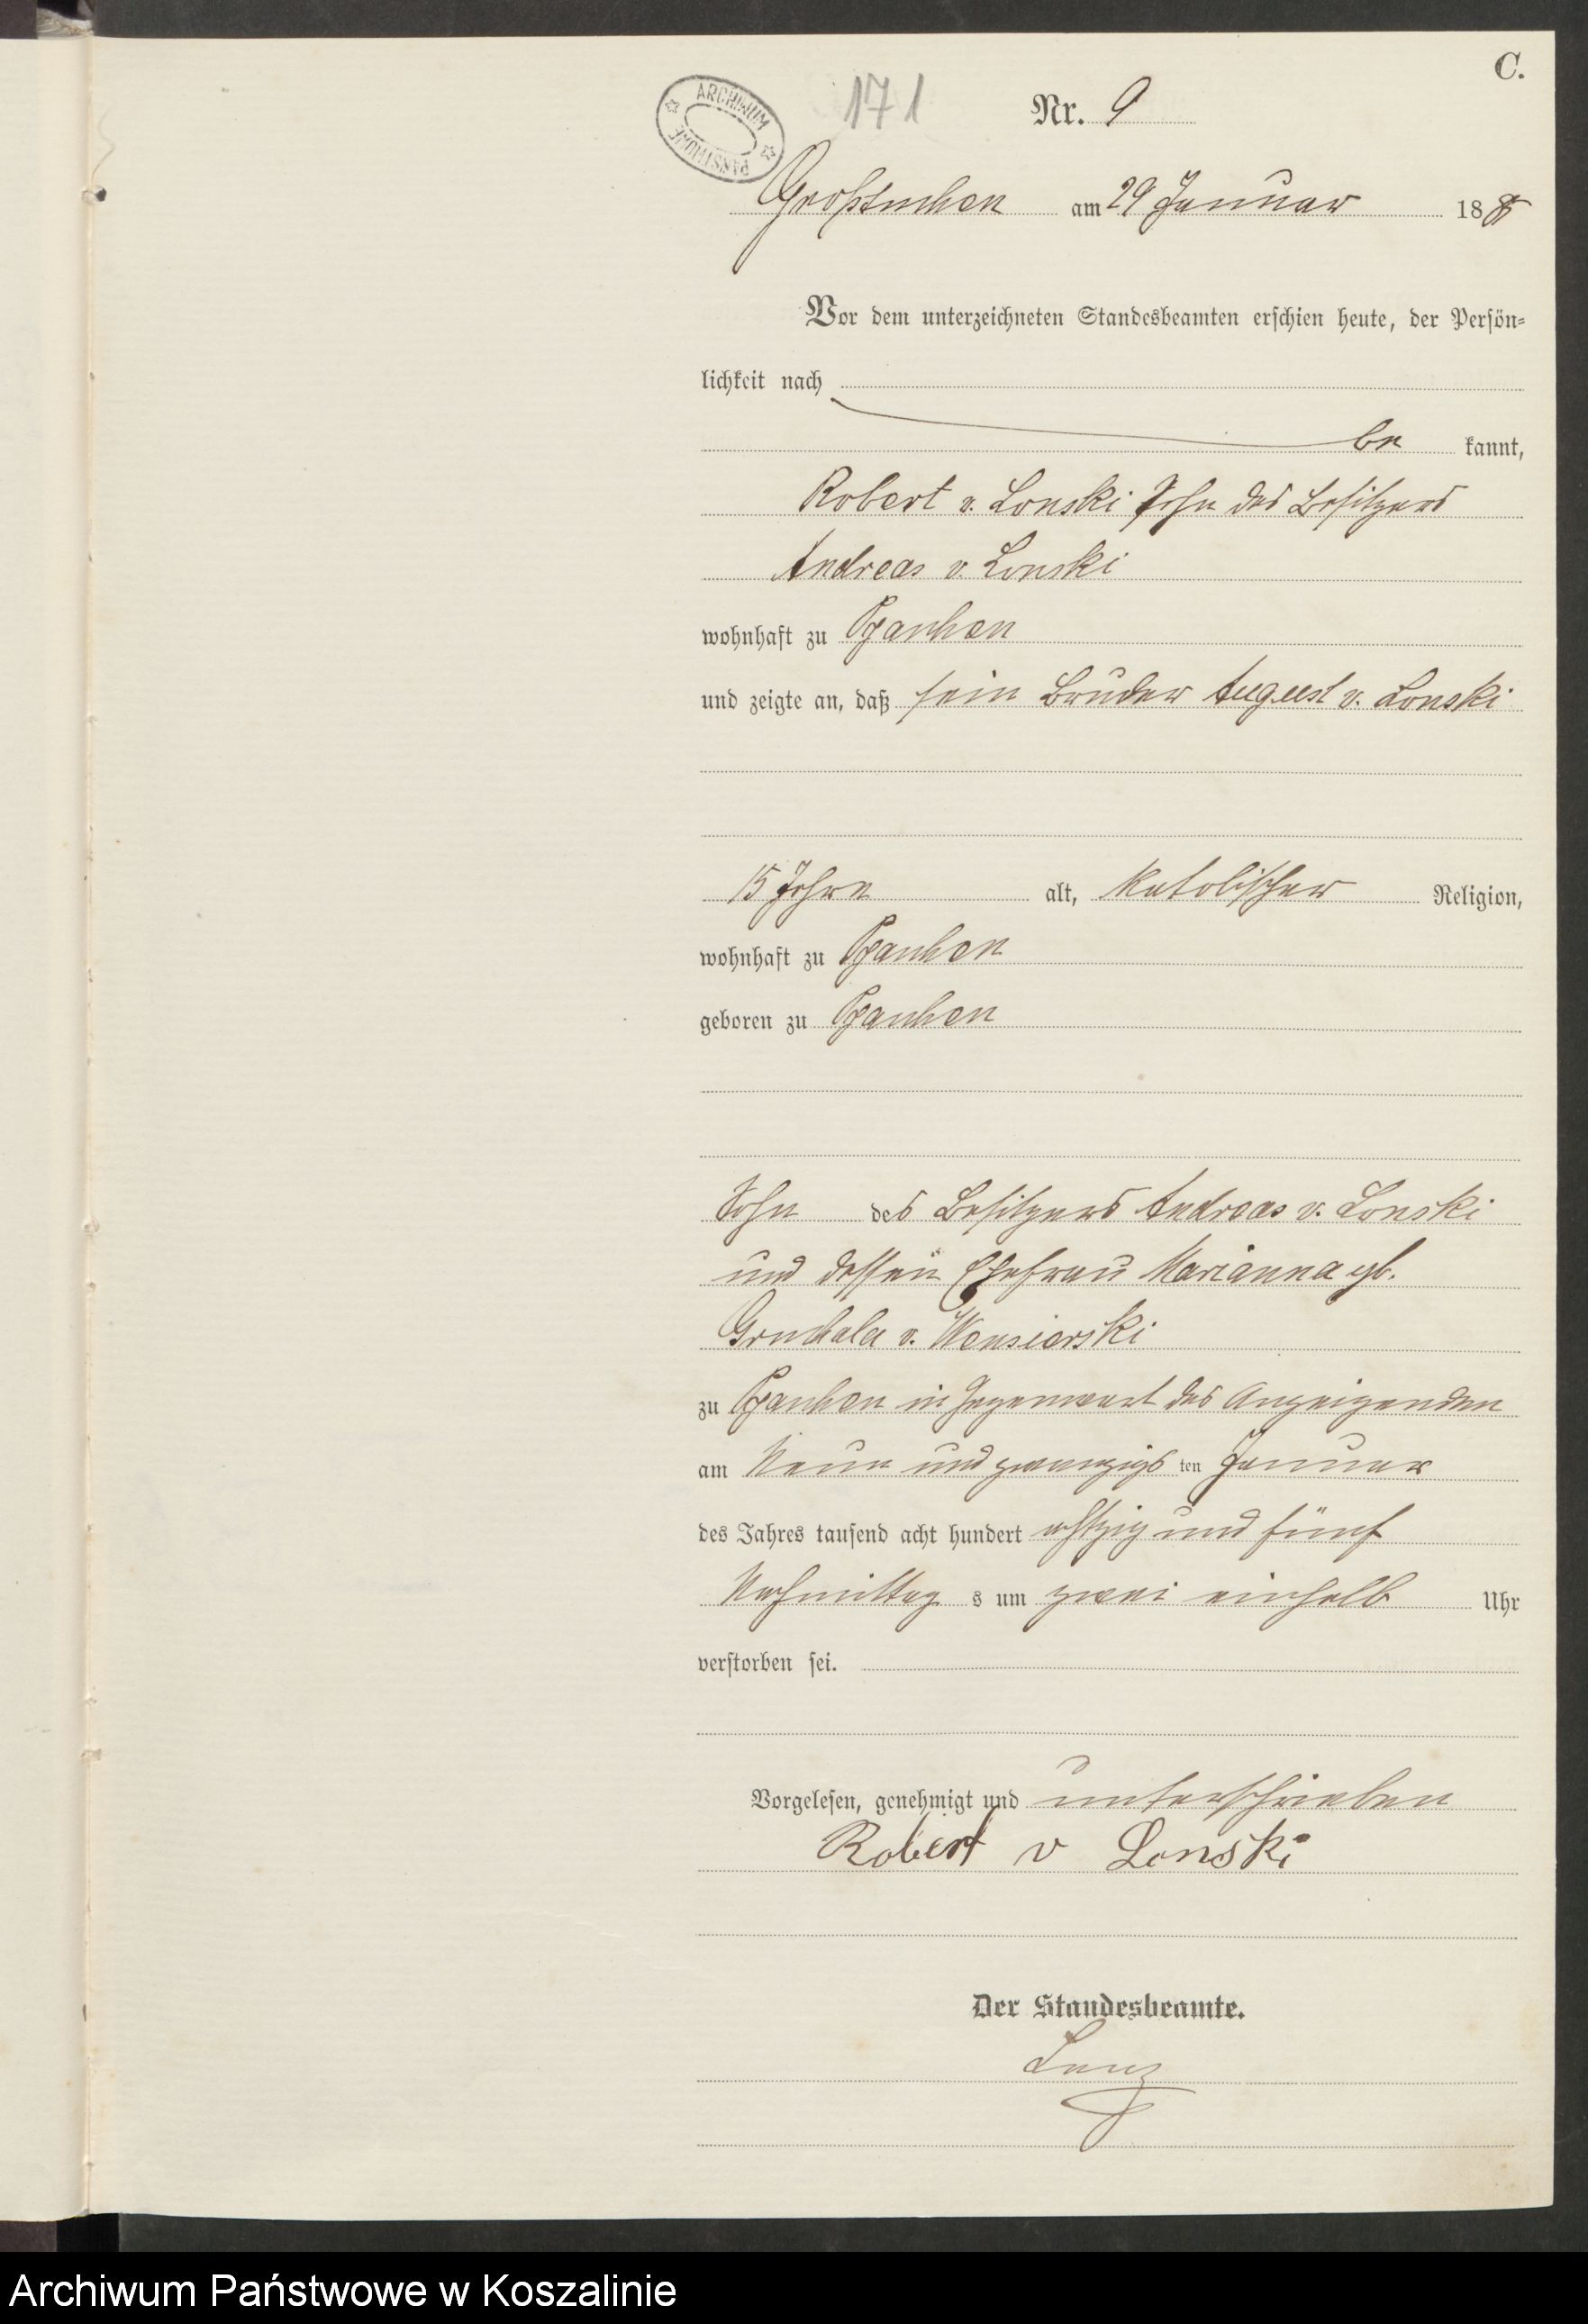 C.
ARCHIWUM PAŃSTWOWE
171
Nr. 9
Großtuchen am 29 Januar 188
Vor dem unterzeichneten Standesbeamten erschien heute, der Persön=
lichkeit nach
be kannt,
Robert v. Lonski Sohn des Besitzers
Andreas v. Lonski
wohnhaft zu
und zeigte an, daß sein Bruder August v. Lonski
15 Jahre alt, katolischer Religion,
wohnhaft zu
geboren zu
Sohn des Besitzers Andreas v. Lonski
und dessen Ehefrau Marianna gb.
Gruchala v. Wensierski
zu in Gegenwart des Anzeigenden
am Neun und zwanzigsten Januar
des Jahres tausend acht hundert achtzig und fünf
Nachmittag s um zwei einhalb Uhr
verstorben sei.
Vorgelesen, genehmigt und unterschrieben
Robert v Lonski
Der Standesbeamte.
Lenz
Archiwum Państwowe w Koszalinie